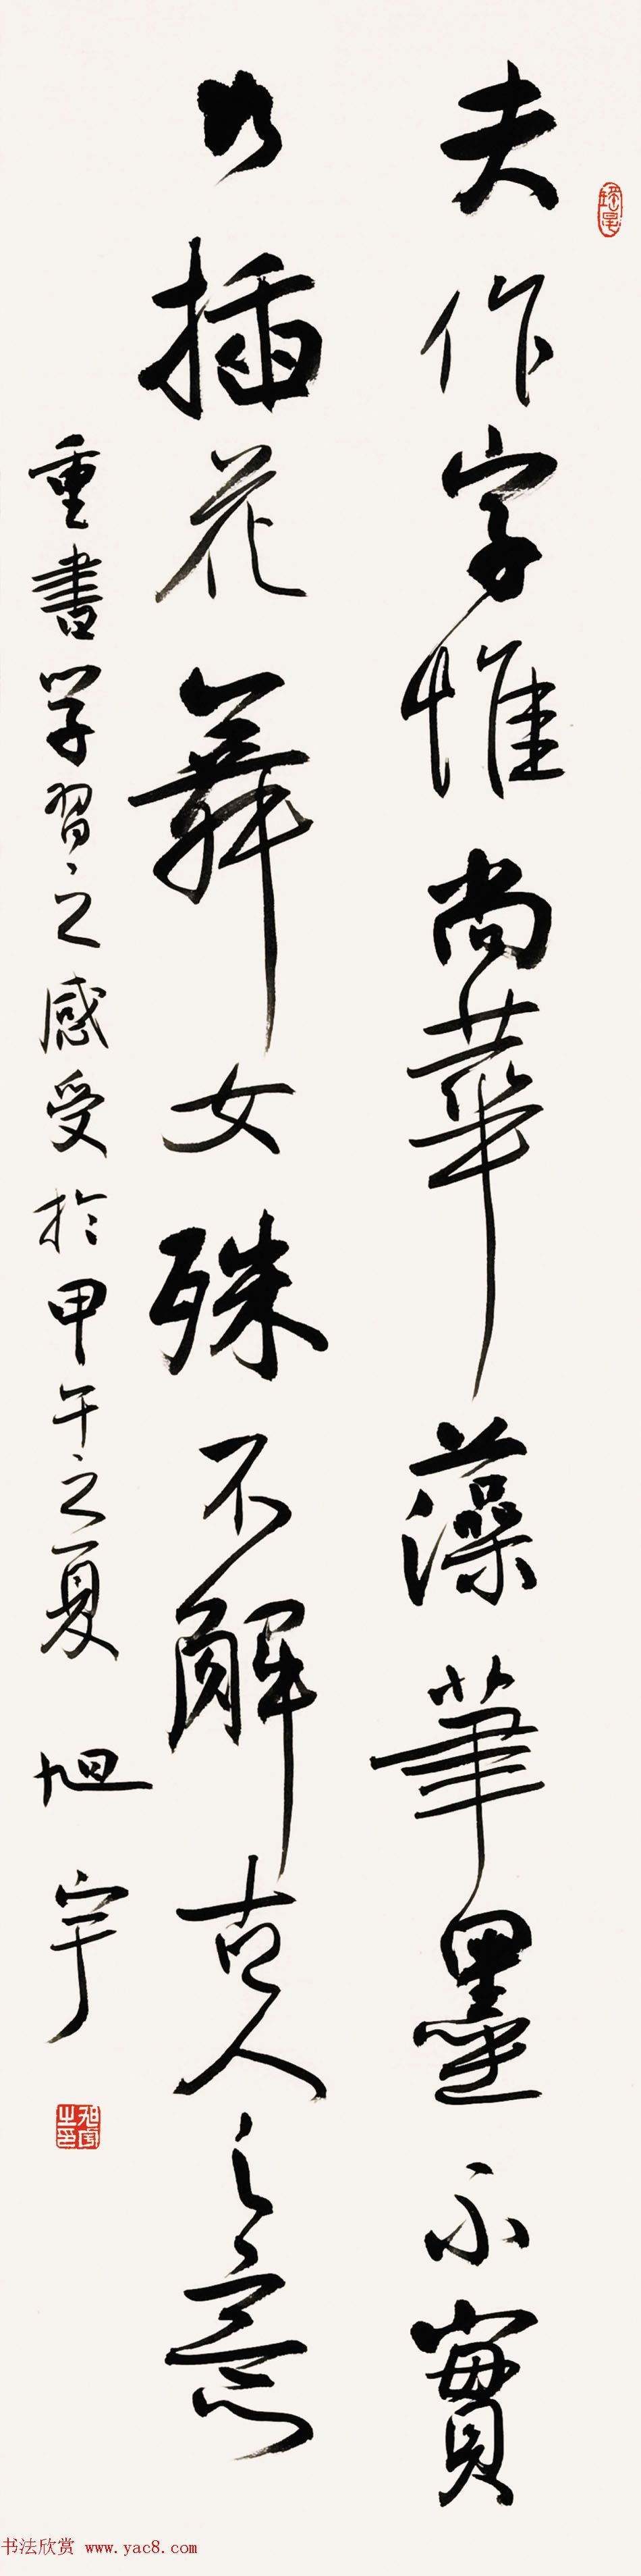 夫作字惟尚華藻筆墨不實
如插花舞女殊不解古人之意
重書学習之感受於甲午之夏
旭宇
旭宇之印
书法欣赏 www.yac8.com